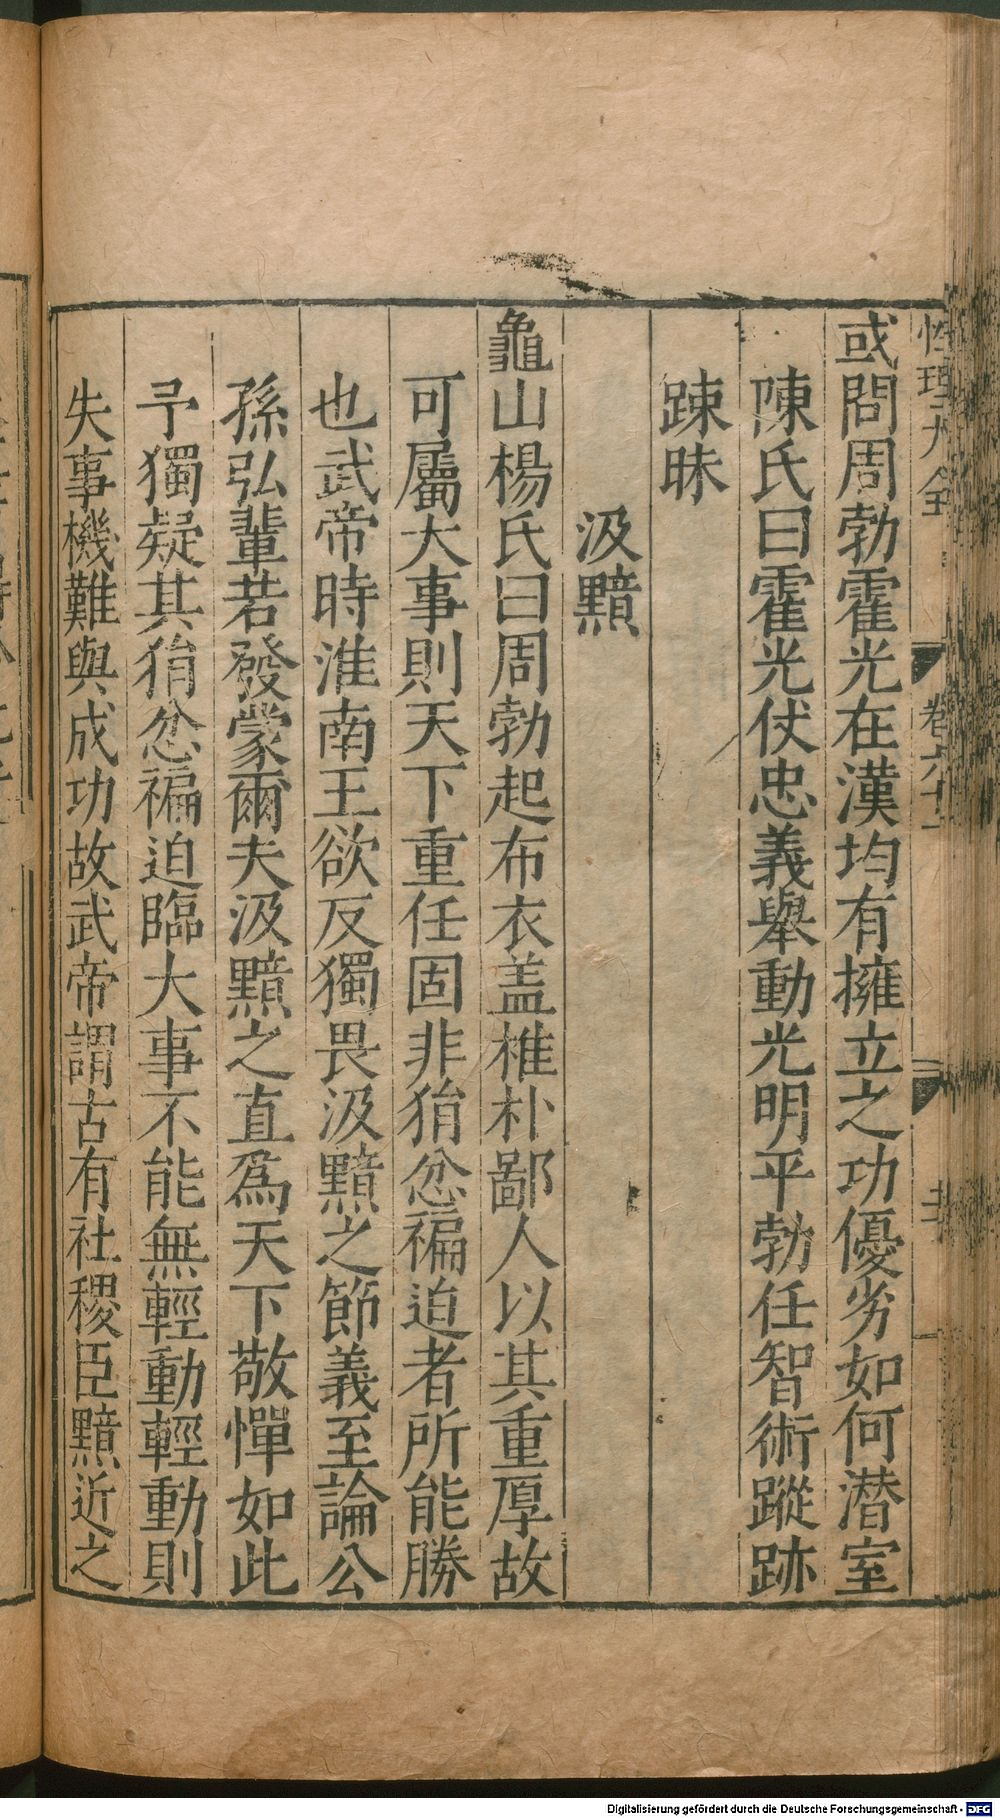 性理大全 卷六十一
或問周勃霍光在漢均有擁立之功優劣如何潜室
陳氏曰霍光仗忠義舉動光明平勃任智術蹤跡
踈昧
汲黯
龜山楊氏曰周勃起布衣盖椎朴鄙人以其重厚故
可屬大事則天下重任固非狷忿褊迫者所能勝
也武帝時淮南王欲反獨畏汲黯之節義至論公
孫弘輩若發蒙爾夫汲黯之直爲天下敬憚如此
予獨疑其狷忿褊迫臨大事不能無輕動輕動則
失事機難與成功故武帝謂古有社稷臣黯近之
Digitalisierung gefördert durch die Deutsche Forschungsgemeinschaft - DFG